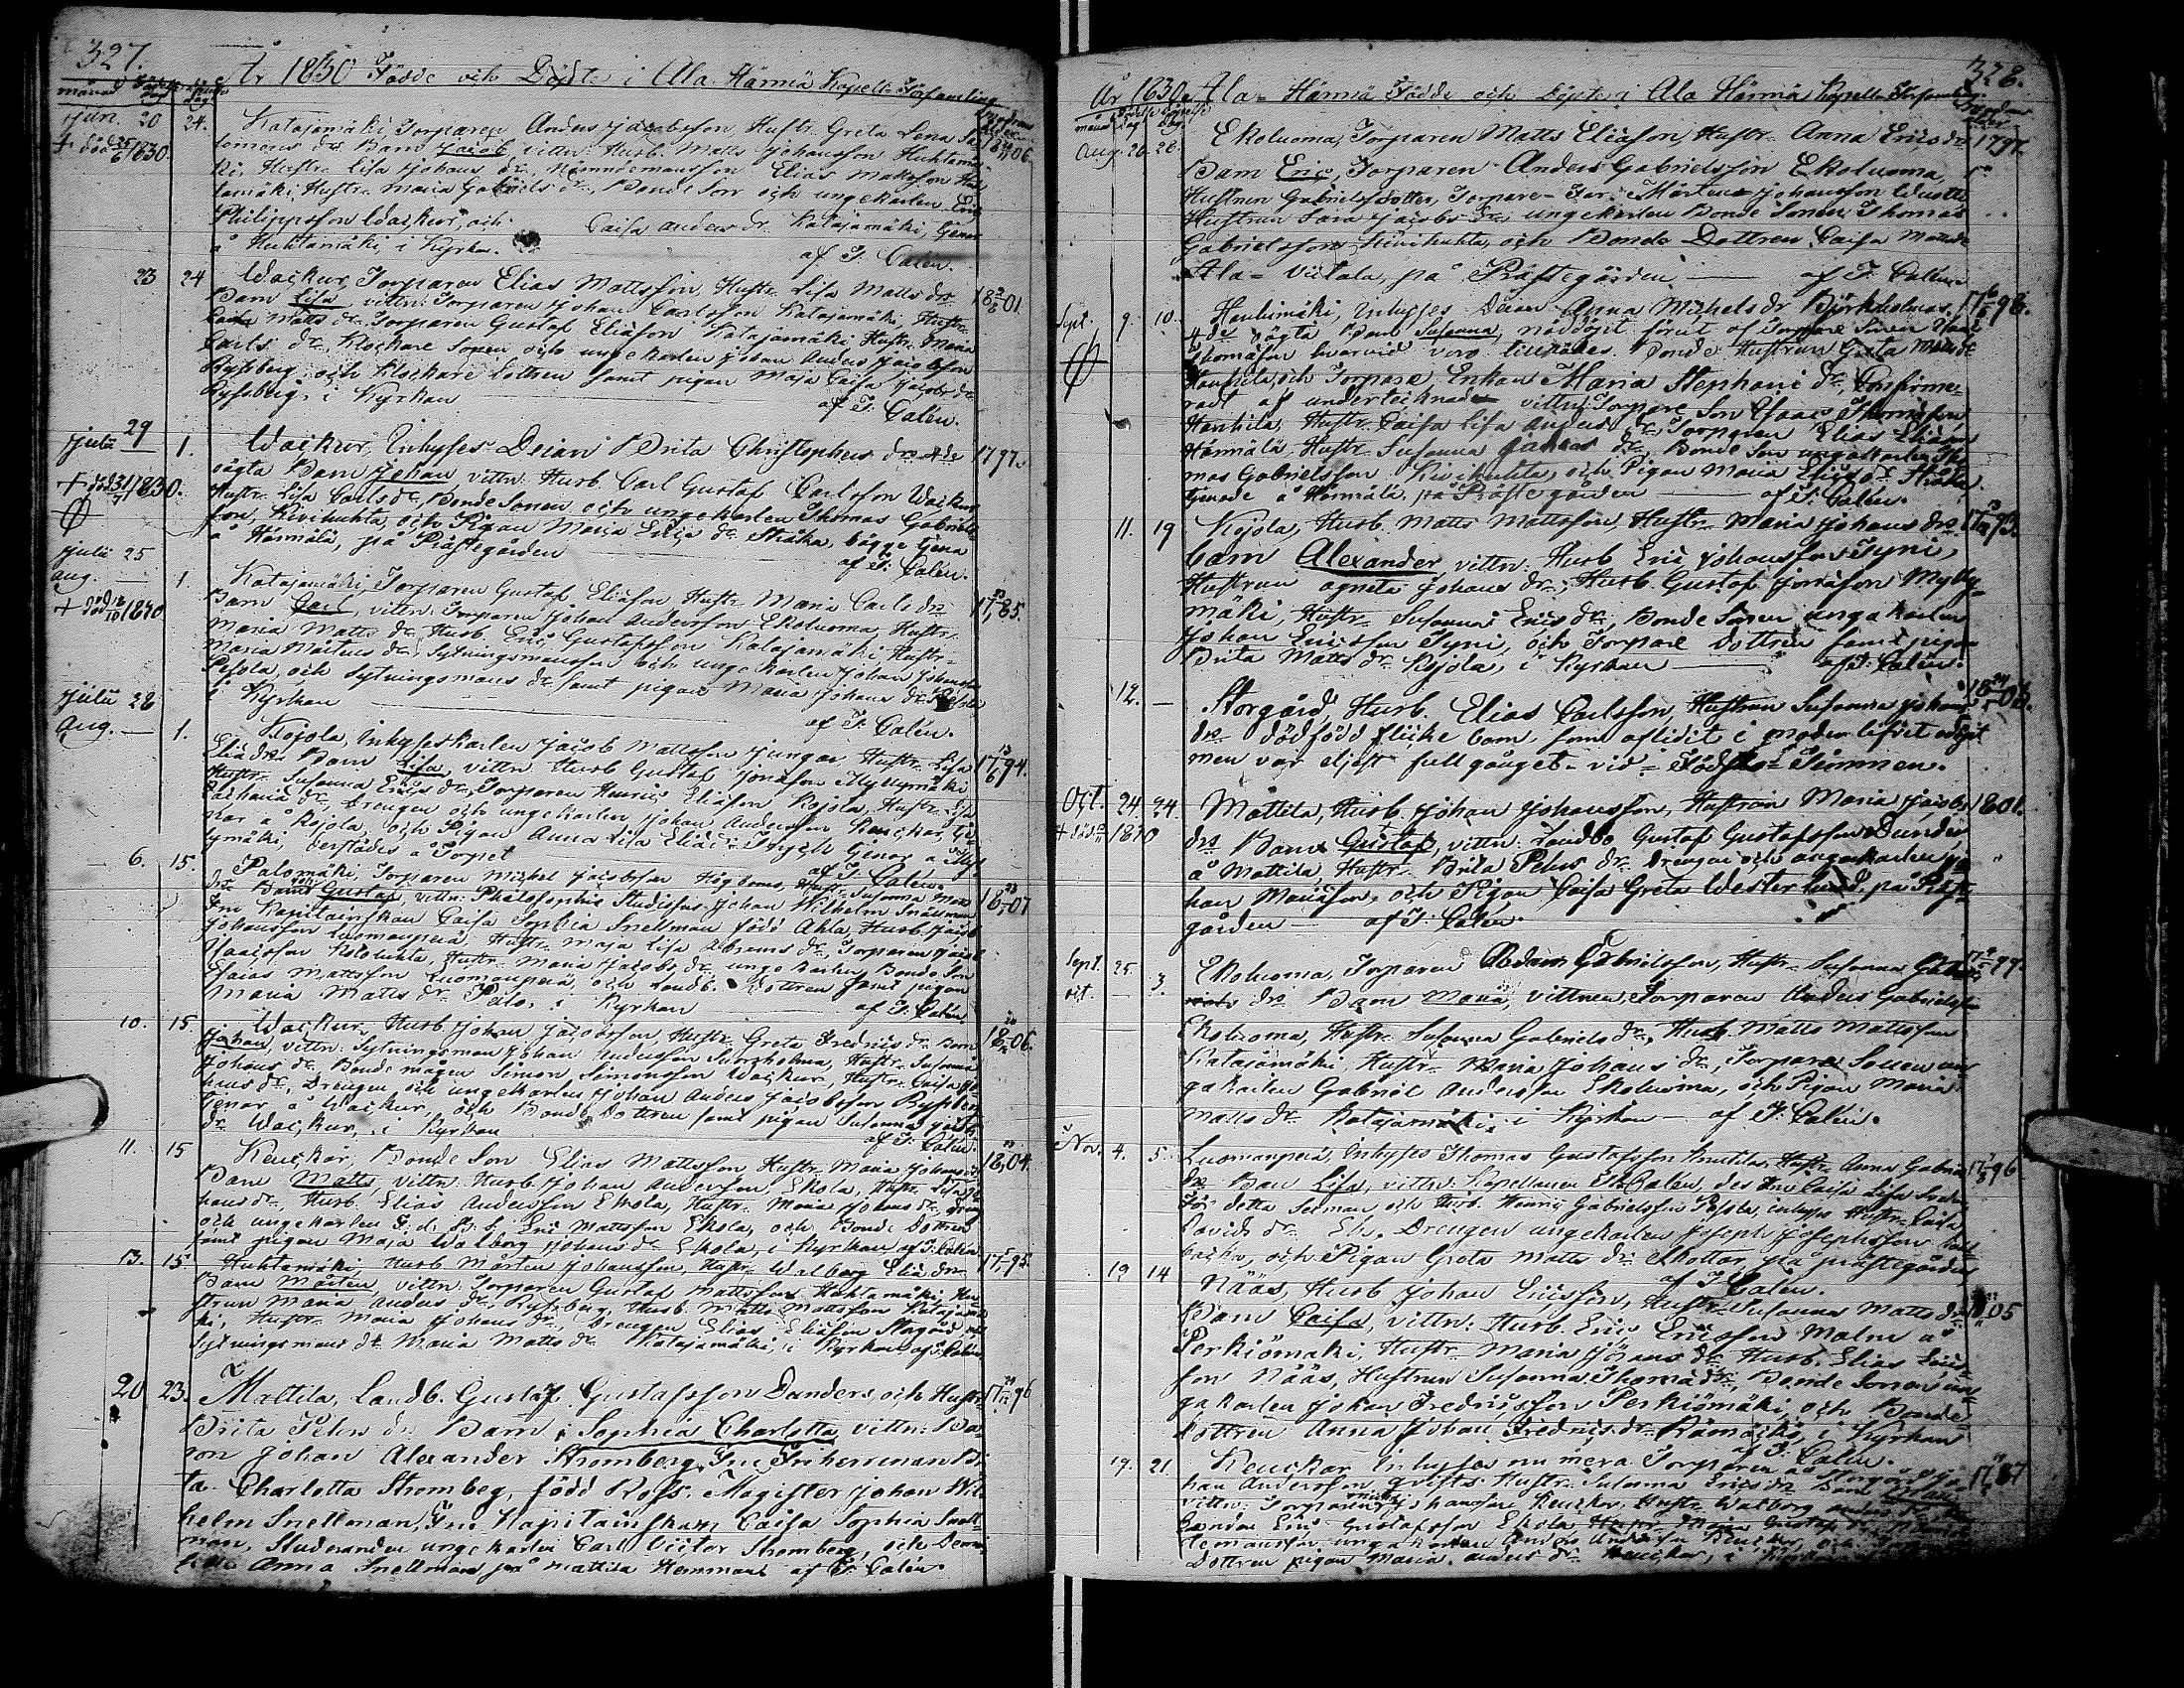 327.
År 1830 Födde och Döpte i Ala Härmä Kapells Församling
månad
Jun. 20 24. Katajamäki, Torparen Anders Jacobsson, Hustr. Greta Lena Sa-
† död 25/6 1830. lomons dr Barn Jacob, vittn: Husb. Matts Johansson Huhtamä- 06.
ki, Hustr. Lisa Johans dr, Nämndemansson Elias Matsson Huh-
tamäki, Hustr. Maria Gabriels dr, Bonde Son och ungekarlen Eric
Philippsson Wackur, och Caisa Anders dr. Katajamäki, tjenar
å Huhtamäki, i Kyrkan. af J. Calén.
23 24 Wackur, Torparen Elias Mattsson, Hustr. Lisa Matts drs 18 01.
Barn Lisa, vittn: Torparen Johan Carlsson Katajamäki, Hustr.
Caisa Matts dr. Torparen Gustaf Eliasson Katajamäki Hustr. Maria
Carls dr, Klockare Sonen och ungekarlen Johan Anders Jacobsson
Ryssberg, och Klockare Dottren samt pigan Maja Caisa Jacobs dr
Ryssberg, i Kyrkan af J. Calén.
29
Julii 1. Wackur, Inhyses Deian Brita Christophers drs 4de 1797.
† död 31/7 1830. oägta Barn Johan, vittn: Husb. Carl Gustaf Carlsson Wackur
Hustr. Lisa Carls dr, Bonde Sonen och ungekarlen Thomas Gabriels-
son, Kivihuhta, och Pigan Maria Erics dr. Stråka, bägge tjena
å Härmälä, på Prästegården af J. Calén.
Julii 25
Aug. — 1. Katajamäki, Torparen Gustaf Eliasson Hustr. Maria Carls drs
† död 1830 Barn Carl, vittn: Torparen Johan Andersson Ekoluoma, Hustr. 17 85.
Maria Matts dr. Husb. Eric Gustafsson Katajamäki, Hustr.
Maria Mårtens dr, Sytningsmansson och ungekarlen Johan Johansson
Pesola, och Sytningsmans dr. samt pigan Maria Johans dr. Pesola
i Kyrkan af J. Calén.
Julii 28
Aug. — 1. Kojola, Inhyseskarlen Jacob Mattsson Jungar Hustr. Lisa
Eliæ drs Barn Lisa, vittn: Husb Gustaf Jonasson Myllymäki 17 94.
Hustr. Susanna Erics dr, Torparen Henric Eliasson Kojola, Hustr. Lisa
Zachariæ dr, Drengen och ungekarlen Johan Andersson Keuckar, tje-
nar å Kojola, och Pigan Anna Lisa Eliæ dr. tjenar å Myl-
lymäki, derstädes å Torpet af J. Calén.
6. 15. Palomäki, Torparen Michel Jacobsson Högboms, Hustr. Susanna Matts
drs Barn Gustaf, vittn: Philosophiæ Studiosus Johan Wilhelm Snellman 18 07
Fru Kapitainskan Caisa Sophia Snellman född Ahla, Husb. Jacob
Johansson Luomanperä, Hustr. Maja Lisa Abrams dr, Torparen Jacob
Isacsson Kivihuhta, Hustr. Maria Jacobs dr, ungekarlen Bonde Son
Esaias Mattsson Luomanperä, och Landb. Dottren samt pigan
Maria Matts dr. Palo, i Kyrkan af J. Calén.
10. 15. Wackur, Husb. Johan Jacobsson, Hustr. Greta Fredrics dr. Barn 18 06.
Johan, vittn: Sytningsman Johan Andersson Sursholma, Hustr. Susanna
Johans dr, Bonde mågen Simon Simonsson Wackur, Hustr. Caisa Jo-
hans dr, Drengen och ungekarlen Johan Anders Jacobsson Ryssberg
tjenar å Wackur, och Bonde Dottren samt pigan Susanna Jacobs
dr Wackur, i Kyrkan af J. Calén.
11. 15 Keuckar, Bonde Son Elias Mattsson Hustr. Maria Johans drs 18 04.
Barn Matts, vittn: Husb. Johan Andersson Ekola, Hustr. Lisa Jo-
hans dr, Husb. Elias Andersson Ekola, Hustr. Maria Johans dr, Dreng
och ungekarlen Eric Mattsson Ekola, och Bonde Dottren
samt pigan Maja Walborg Johans dr Ekola, i Kyrkan af J. Calén
13. 15. Huhtamäki, Husb Mårten Johansson, Hustr. Walborg Eliæ drs 17 95.
Barn Mårten, vittn: Torparen Gustaf Mattsson Huhtamäki, Hu-
strun Maria Anders dr, Ryssberg, Husb. Matts Mattsson Katajamä-
ki, Hustr. Maria Johans dr, Drengen Elias Eliasson Stagård och
Sytningsmans dr Maria Matts dr Katajamäki, i Kyrkan af J. Calén
20 23. Mattila, Landb. Gustaf Gustafsson Danders och Hustr. 17 96
Brita Petrs drs Barn, Sophia Charlotta, vittn: Ba-
ron Johan Alexander Stromberg, Fru Friherrinnan Bri-
ta Charlotta Stromberg, född Ross. Magister Johan Wil-
helm Snellman, Fru Kapitainskan Caisa Sophia Snell-
man, Studeranden ungekarlen Carl Victor Stromberg, och Demoi-
selle Anna Snellman på Mattila Hemmans af J. Calén.
328.
År 1830. Ala Härmä Födde och Döpte i Ala Härmä Kapells Församling
Aug. 26 28. Ekoluoma, Torparen Matts Eliasson, Hustr. Anna Erics drs 1797.
Barn Eric, Torparen Anders Gabrielsson Ekoluoma,
Hustrun Gabrielsdotter, Torpare- Mårten Johansson
Hustrun Sara Jacobs dr, ungekarlen Bonde Sonen Thomas
Gabrielsson Kivihuhta, och Bonde Dottren Caisa Matts dr
Ala-Viitala, på Prästegården — af J. Calén
Sept. 9. 10. Hanhimäki, Inhyses Deian Anna Michels dr Björkholmas, 17 98.
4de oägta Barn Susanna, nöddöpt förut af Torpare Sonen Isaac
Thomasson hvarvid voro tillstädes Bonde Hustrun Greta Matts dr
Hanhila, och Torpare Enkan Maria Stephani dr, Confirme-
radt af undertecknad, vittn: Torpare Son Isaac Thomasson
Hanhila, Hustr. Caisa Lisa Anders dr, Torparen Elias Eliasson
Härmälä, Hustr. Susanna Johans dr, Bonde Son ungekarlen Tho-
mas Gabrielsson Kivihuhta, och Pigan Maria Erics dr Stråka,
tjenande å Härmälä, på Prästegården — af J. Calén.
11. 19 Kojola, Husb. Matts Mattsson, Hustr. Maria Johans drs
barn Alexander vittn: Husb Eric Johansson Syni,
Hustrun Agneta Johans dr, Husb. Gustaf Jonasson Mylly-
mäki, Hustr. Susanna Erics dr, Bonde Sonen ungekarlen
Johan Ericsson Syni, och Torpare Dottren samt pigan
Brita Matts dr Kojola, i Kyrkan — af J. Calén.
12. — Storgård, Husb. Elias Carlsson, Hustrun Susanna Johans 18
drs dödfödd flicke barn som aflidit i moderlifvet
men var eljest fullgånget vid Födslo-Timmen.
Oct. 24. 24. Mattila, Husb. Johan Johansson, Hustrun Maria Jacobs 1801.
† död 1830 drs Barn Gustaf, vittn: Landbo Gustaf Gustafsson Danders
å Mattila, Hustr. Brita Petrs dr. Drengen och ungekarlen Jo-
han Mariæson, och Pigan Caisa Greta Westerlund, på Präst-
gården — af J. Calén.
Sept. 25.
Oct. — 3. Ekoluoma, Torparen Adam Gabrielsson, Hustr. Susanna 17 99.
drs Barn Maria, vittnen, Torparen Anders Gabrielsson
Ekoluoma, Hustr. Susanna Gabriels dr, Husb. Matts Mattsson
Katajamäki, Hustr. Maria Johans dr, Torpare Sonen un-
gekarlen Gabriel Andersson Ekoluoma, och Pigan Maria
Matts dr Katajamäki, i Kyrkan af J. Calén.
Nov. 4. 5. Luomanperä, Inhyses Thomas Gustafsson Knutila, Hustr. Anna Gabriels 17 96
drs Barn Lisa, vittn: Kapellanen J. Calén, dess Fru Caisa Lisa
För detta och Husb. Henric Gabrielsson Pesola, inhyses Hustr. Caisa
Davids dr Drengen ungekarlen Joseph Josephsson
och Pigan Greta Matts dr Skottar, på prästegården
af J. Calén.
13 14 Nääs, Husb Johan Ericsson, Hustr. Susanna Matts drs 05
Barn Caisa, vittn: Husb. Eric Ericsson Malm å
Perkiömäki, Hustr. Maria Johans dr Husb. Elias Erics-
son Nääs, Hustrun Susanna Thomæ dr, Bonde Sonen un-
gekarlen Johan Fredricsson Perkiömäki, och Bonde
Dottren Anna Johan Fredrics dr Rämäckö, i Kyrkan
af J. Calén.
19. 21. Keuckar, Inhyses nu mera Torparen å Storgård Jo-
han Andersson gviste Hustr. Susanna Erics drs Barn 17 87
vittn: Torparen Johansson Keuckar, Hustr. Walborg Anders dr,
Eric Gustafsson Ekola,
ungekarlen Anders Andersson Keuckar, och
Dottren pigan Maria Anders dr Keuckar, i